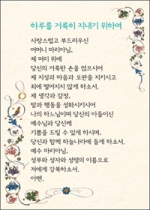 하루를 거룩히 지내기 위하여
사랑스럽고 부드러우신
어머니 마리아님,
제 머리 위에
당신의 거룩한 손을 얹으시어
제 지성과 마음과 오관을 지키시고
죄에 떨어지지 않게 하소서.
제 생각과 감정,
말과 행동을 성화시키시어
나의 하느님이며 당신의 아들이신
예수님과 당신께
기쁨을 드릴 수 있게 하시며,
당신과 함께 하늘나라에 들게 하소서.
예수 마리아님,
성부와 성자와 성령의 이름으로
저에게 강복하소서.
아멘.